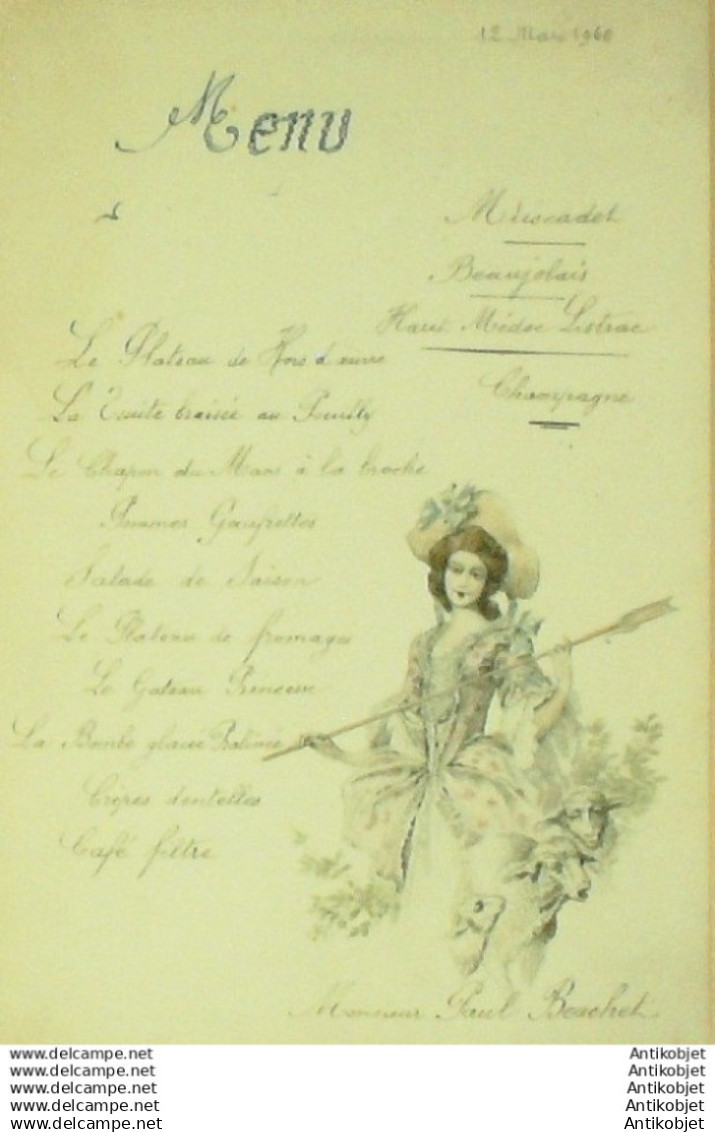 12 Mars 1960
Menu
Muscadet
Beaujolais
Haut Médoc Listrac
Champagne
Le Plateau de Hors d'œuvre
La Truite braisée au Pouilly
Le Chapon du Mans à la broche
Pommes Gaufrettes
Salade de Saison
Le Plateau de fromages
Le Gateau Princesse
La Bombe glacée Pralinée
Crêpes dentelles
Café filtre
Monsieur Paul Beachet
www.delcampe.net Antikobjet
www.delcampe.net Antikobjet
www.delcampe.net Antikobjet
www.delcampe.net Antikobjet
www.delcampe.net Antikobjet